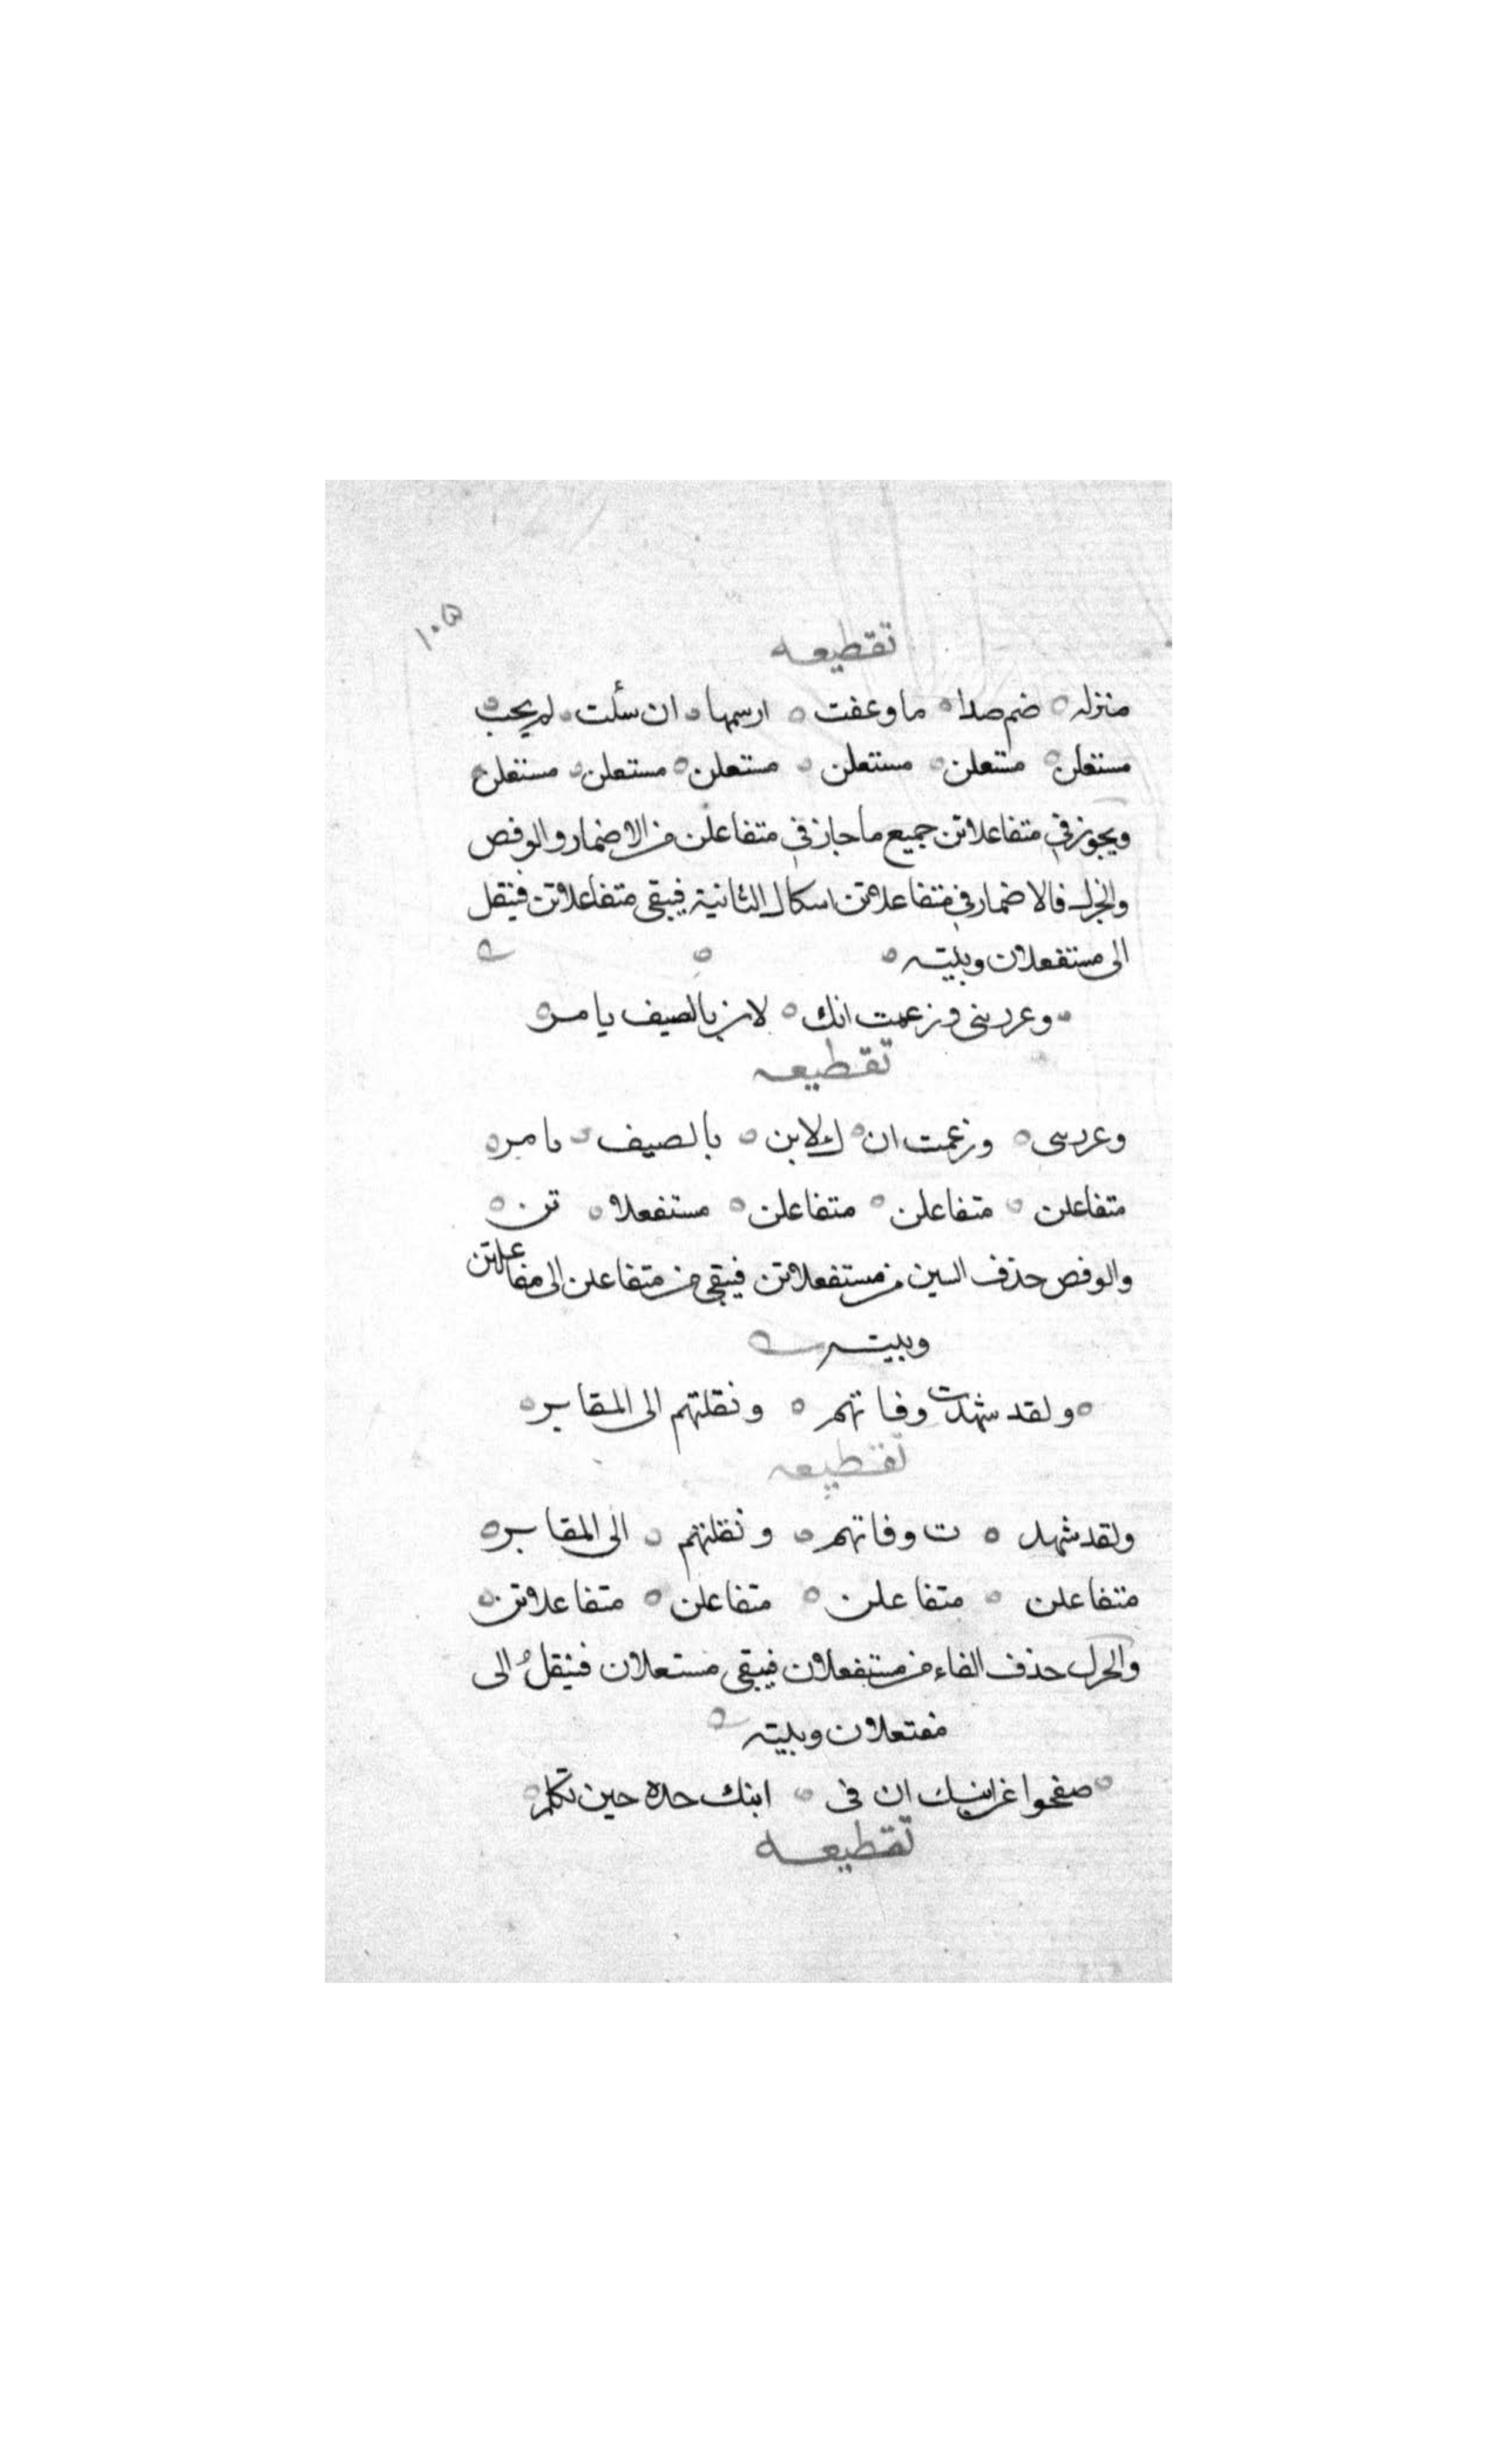 ١٠٥
تقطيعه
منزله ضم صدا ما وعفت ارسمها ان سألت لم يجب
مستعلن مستعلن مستعلن مستعلن مستعلن مستعلن
ويجوز في متفاعلاتن جميع ما جاز في متفاعلن من الاضمار والوقص
والخزل فالاضمار في متفاعلاتن اسكان الثانية فيبقى متفاعلاتن فينقل
الى مستفعلان وبيته
وعررتنى وزعمت انك لابن بالصيف يا مر
تقطيعه
وعررسى وزعمت ان ك لابن بالصيف يا مر
متفاعلن متفاعلن متفاعلن مستفعلا تن
والوقص حذف السين من مستفعلاتن فيبقى من متفاعلن الى مفاعلاتن
وبيته
ولقد شهدت وفاتهم ونقلتهم الى المقابر
تقطيعه
ولقد شهد ت وفاتهم ونقلتهم الى المقابر
متفاعلن متفاعلن متفاعلن متفاعلاتن
والخزل حذف الفاء من مستفعلان فيبقى مستعلان فينقل الى
مفتعلان وبيته
صفحوا عن ابنك ان فى ابنك حدة حين تكلم
تقطيعه